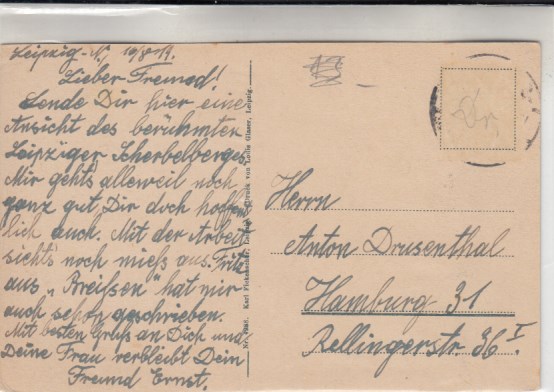 Leipzig-N, 10/8 19.
Lieber Freund!
Sende Dir hier eine
Ansicht des berühmten
Leipziger Scherbelberges
Mir gehts alleweil noch
ganz gut, Dir doch hoffent
lich auch. Mit der Arbeit
siehts noch mieß aus. Fritz
aus „Preißen" hat mir
auch schon geschrieben.
Mit besten Gruß an Dich und
Deine Frau verbleibt Dein
Freund Ernst.
Karl Fickenscher, Leipzig
Druck von Louis Glaser, Leipzig
Herrn
Anton Drusenthal
Hamburg 31
Rellingerstr. 36 I.